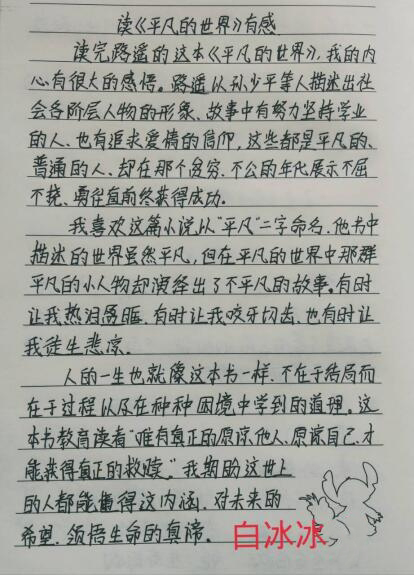 读《平凡的世界》有感
读完路遥的这本《平凡的世界》,我的内
心有很大的感悟。路遥以孙少平等人描述出社
会各阶层人物的形象、故事中有努力坚持学业
的人、也有追求爱情的信仰,这些都是平凡的、
普通的人、却在那个贫穷、不公的年代展示不屈
不挠、勇往直前终获得成功。
我喜欢这篇小说以"平凡"二字命名、他书中
描述的世界虽然平凡,但在平凡的世界中那群
平凡的小人物却演绎出了不平凡的故事。有时
让我热泪盈眶、有时让我咬牙切齿、也有时让
我徒生悲凉.
人的一生也就像这本书一样、不在于结局而
在于过程以及在种种困境中学到的道理。这
本书教育读者"唯有真正的原谅他人、原谅自己、才
能获得真正的救赎。"我期盼这世上
的人都能懂得这内涵、对未来的
希望、领悟生命的真谛。
白冰冰